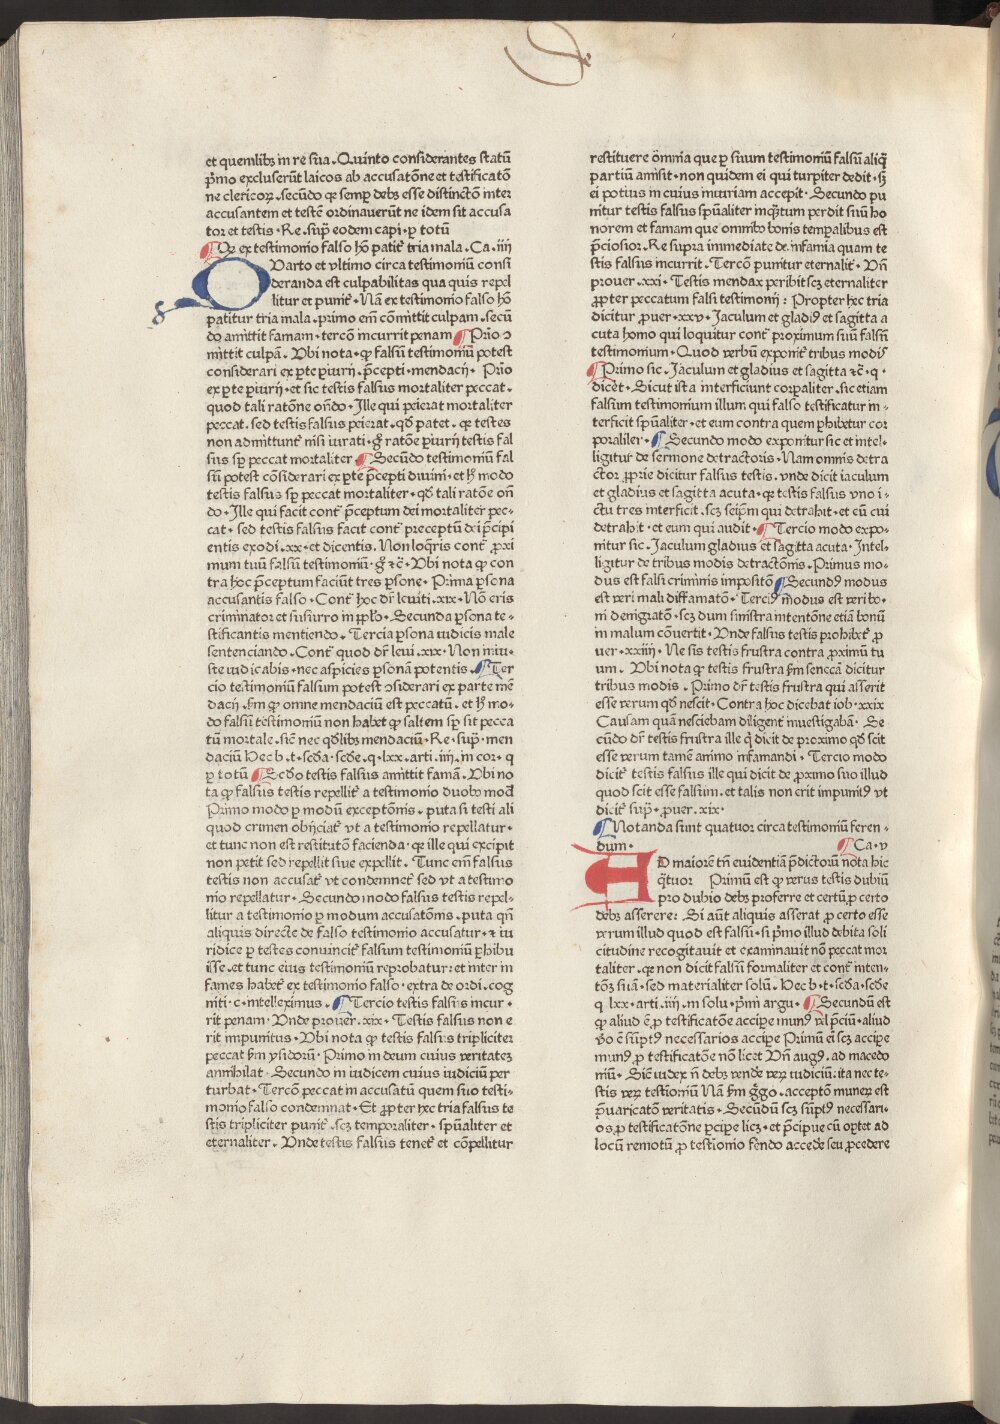 S.
et quemlibꝫ in re sua. Quinto considerantes statū
p̄mo excluserūt laicos ab accusatōne et testificatō
ne clericoꝝ. secūdo qꝛ semp̱ debꝫ esse distinctō inter
accusantem et testē ordinauerūt ne idem sit accusa
tor et testis. Re. sup̄ eodem capi. ꝑ totū
¶Qꝛ ex testimonio falso hō patit᷑ tria mala. Ca. iiij
Quarto et vltimo circa testimoniū consi
deranda est culpabilitas qua quis repel
litur et punit᷑. Nā ex testimonio falso hō
patitur tria mala. primo em̄ cōmittit culpam. secū
do amittit famam. tercō incurrit penam ¶Prīo ↄ
mittit culpā. Vbi nota. ꝙ falsū testimoniū potest
considerari ex ꝑte ꝑiurij. p̄cepti. mendacij. Prīo
ex ꝑte ꝑiurij. et sic testis falsus mortaliter peccat.
quod tali ratōne on̄do. Ille qui peierat mortaliter
peccat. sed testis falsus peierat. qd̄ patet. qꝛ testes
non admittunt᷑ nisi iurati. g̊ ratōne ꝑiurij testis fal
sus sp̱ peccat mortaliter ¶Secūdo testimoniū fal
sū potest cōsiderari ex ꝑte p̄cepti diuini. et h̄ modo
testis falsus sp̱ peccat mortaliter. qd̄ tali ratōne on̄
do. Ille qui facit cont᷑ p̄ceptum dei mortaliter pec-
cat. sed testis falsus facit cont᷑ preceptū dei p̄cipi
entis exodi. xx. et dicentis. Non loq̄ris cont᷑ ꝓxi
mum tuū falsū testimoniū. g̊ ⁊c̄. Vbi nota ꝙ con
tra hoc p̄ceptum faciūt tres ꝑsone. Prima ꝑsona
accusantis falso. Cont᷑ hoc dr̄ leuiti. xix. Nō eris
criminator et susurro in pp̄lo. Secunda ꝑsona te-
stificantis mentiendo. Tercia ꝑsona iudicis male
sentenciando. Cont᷑ quod dr̄ leui. xix. Non iniu-
ste iudicabis. nec aspicies ꝑsonā potentis. ¶Ter
cio testimoniū falsum potest ↄsiderari ex parte mē
dacij. s̄m ꝙ omne mendaciū est peccatū. et h̄ mo-
do falsū testimoniū non habet ꝙ saltem sp̱ sit pecca
tū mortale. sic̄ nec qd̄libꝫ mendaciū. Re. sup̄. men
daciū Hec b. t. scd̄a. scd̄e. q. lxx. arti. iiij. in cor. q
ꝑ totū ¶Scd̄o testis falsus amittit famā. Vbi no
ta ꝙ falsus testis repellit᷑ a testimonio duobꝰ mod̄
Primo modo ꝑ modū exceptōnis. puta si testi ali
quod crimen obijciat᷑ vt a testimonio repellatur.
et tunc non est restitutō facienda. qꝛ ille qui excipit
non petit sed repellit siue expellit. Tunc em̄ falsus
testis non accusat᷑ vt condemnet᷑ sed vt a testimo
nio repellatur. Secundo modo falsus testis repel-
litur a testimonio ꝑ modum accusatōnis. puta qn̄
aliquis directe de falso testimonio accusatur. ⁊ iu
ridice ꝑ testes conuincit᷑ falsum testimoniū ꝑhibu
isse. et tunc eius testimoniū reprobatur. et inter in
fames habet᷑ ex testimonio falso. extra de ordi. cog
niti. c. intelleximus. ¶Tercio testis falsus incur.
rit penam. Vnde prouer. xix. Testis falsus non e
rit impunitus. Vbi nota ꝙ testis falsus tripliciter
peccat s̄m ysidorū. Primo in deum cuius veritatez
annihilat. Secundo in iudicem cuius iudiciū per
turbat. Tercō peccat in accusatū quem suo testi-
monio falso condemnat. Et ꝓpter hec tria falsus te
stis tripliciter punit᷑. scꝫ temporaliter. spūaliter et
eternaliter. Vnde testis falsus tenet᷑ et cōpellitur
restituere om̄nia que ꝑ suum testimoniū falsū aliq̄
partiū amisit. non quidem ei qui turpiter dedit. sꝫ
ei potius in cuius iniuriam accepit. Secundo pu
nitur testis falsus spūaliter inq̄ntum perdit suū ho
norem et famam que omnibꝰ bonis temꝑalibus est
p̄ciosior. Re supra immediate de infamia quam te
stis falsus incurrit. Tercō punitur eternalit᷑. Vn̄
prouer. xxi. Testis mendax peribit scꝫ eternaliter
ꝓpter peccatum falsi testimonij: Propter hec tria
dicitur ꝓuer. xxv. Jaculum et gladiꝰ et sagitta a
cuta homo qui loquitur cont᷑ proximum suū falsū
testimonium. Quod verbū exponit᷑ tribus modis
¶Primo sic. Jaculum et gladius et sagitta ⁊c̄. q.
dicet. Sicut ista interficiunt corꝑaliter. sic etiam
falsum testimonium illum qui falso testificatur in-
terficit spūaliter. et eum contra quem ꝑhibetur cor
poraliter. ¶Secundo modo exponitur sic et intel-
ligitur de sermone detractoris. Nam omnis detra
ctor ꝓprie dicitur falsus testis. vnde dicit iaculum
et gladius et sagitta acuta. qꝛ testis falsus vno i-
ctu tres interficit. scꝫ seip̄m qui detrahit. et eū cui
detrahit. et eum qui audit. ¶Tercio modo expo-
nitur sic. Jaculum gladius et sagitta acuta. Intel-
ligitur de tribus modis detractōnis. Primus mo-
dus est falsi criminis impositō ¶Secundꝰ modus
est veri mali diffamatō. Terciꝰ modus est veri bo-
ni denigratō. scꝫ dum sinistra intentōne etiā bonū
in malum cōuertit. Vnde falsus testis prohibet᷑ ꝓ
uer. xxiiij. Ne sis testis frustra contra ꝓximū tu
um. Vbi nota ꝙ testis frustra s̄m senecā dicitur
tribus modis. Primo dr̄ testis frustra qui asserit
esse verum qd̄ nescit. Contra hoc dicebat iob. xxix
Causam quā nesciebam diligent᷑ inuestigabā. Se
cūdo dr̄ testis frustra ille q̄ dicit de proximo qd̄ scit
esse verum tamē animo infamandi. Tercio modo
dicit᷑ testis falsus ille qui dicit de ꝓximo suo illud
quod scit esse falsum. et talis non erit impunitꝰ vt
dicit᷑ sup̄. ꝓuer. xix.
¶Notanda sunt quatuor circa testimoniū feren-
dum. ¶Ca. v
AD maiorē tn̄ euidentiā p̄dictorū nota hic
q̄tuor Primū est ꝙ verus testis dubiū
pro dubio debꝫ proferre et certū ꝓ certo
debꝫ asserere: Si aūt aliquis asserat ꝓ certo esse
verum illud quod est falsū. si p̄mo illud debita soli
citudine recogitauit et examinauit nō peccat mor
taliter. qꝛ non dicit falsū formaliter et cont᷑ inten-
tōꝫ suā. sed materialiter solū. Hec b. t. scd̄a. scd̄e
q lxx. arti. iiij. in solu. p̄mi argu. ¶Secundū est
ꝙ aliud ē ꝓ testificatōe accipe munꝰ vel p̄ciū. aliud
v̊o ē sūptꝰ necessarios accipe Primū ei scꝫ accipe
munꝰ ꝓ testificatōe nō licet Vn̄ augꝰ. ad macedo
niū. Sic̄ iudex n̄ debꝫ vende veꝝ iudiciū. ita nec te-
stis veꝝ testioniū Nā s̄m g̊go. acceptō muneꝝ est
p̄uaricatō veritatis. Secūdū scꝫ sūptꝰ necessari-
os ꝓ testificatōe ꝑcipe licꝫ. et p̄cipue cū oꝑtet ad
locū remotū ꝓ testionio fendo accede seu ꝓcedere